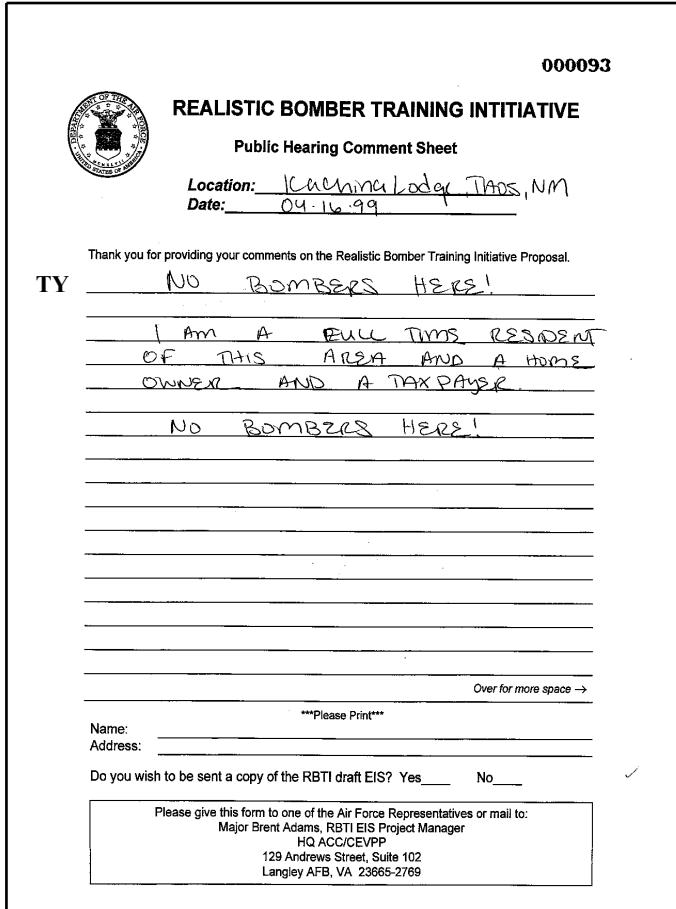 000093
DEPARTMENT OF THE AIR FORCE
UNITED STATES OF AMERICA
REALISTIC BOMBER TRAINING INTITIATIVE
Public Hearing Comment Sheet
Location: Kachina Lodge, TAOS, NM
Date: 04.16.99
Thank you for providing your comments on the Realistic Bomber Training Initiative Proposal.
TY NO BOMBERS HERE!
I AM A FULL TIME RESIDENT
OF THIS AREA AND A HOME
OWNER AND A TAX PAYER.
NO BOMBERS HERE!
Over for more space →
***Please Print***
Name:
Address:
Do you wish to be sent a copy of the RBTI draft EIS? Yes____ No____
Please give this form to one of the Air Force Representatives or mail to:
Major Brent Adams, RBTI EIS Project Manager
HQ ACC/CEVPP
129 Andrews Street, Suite 102
Langley AFB, VA 23665-2769